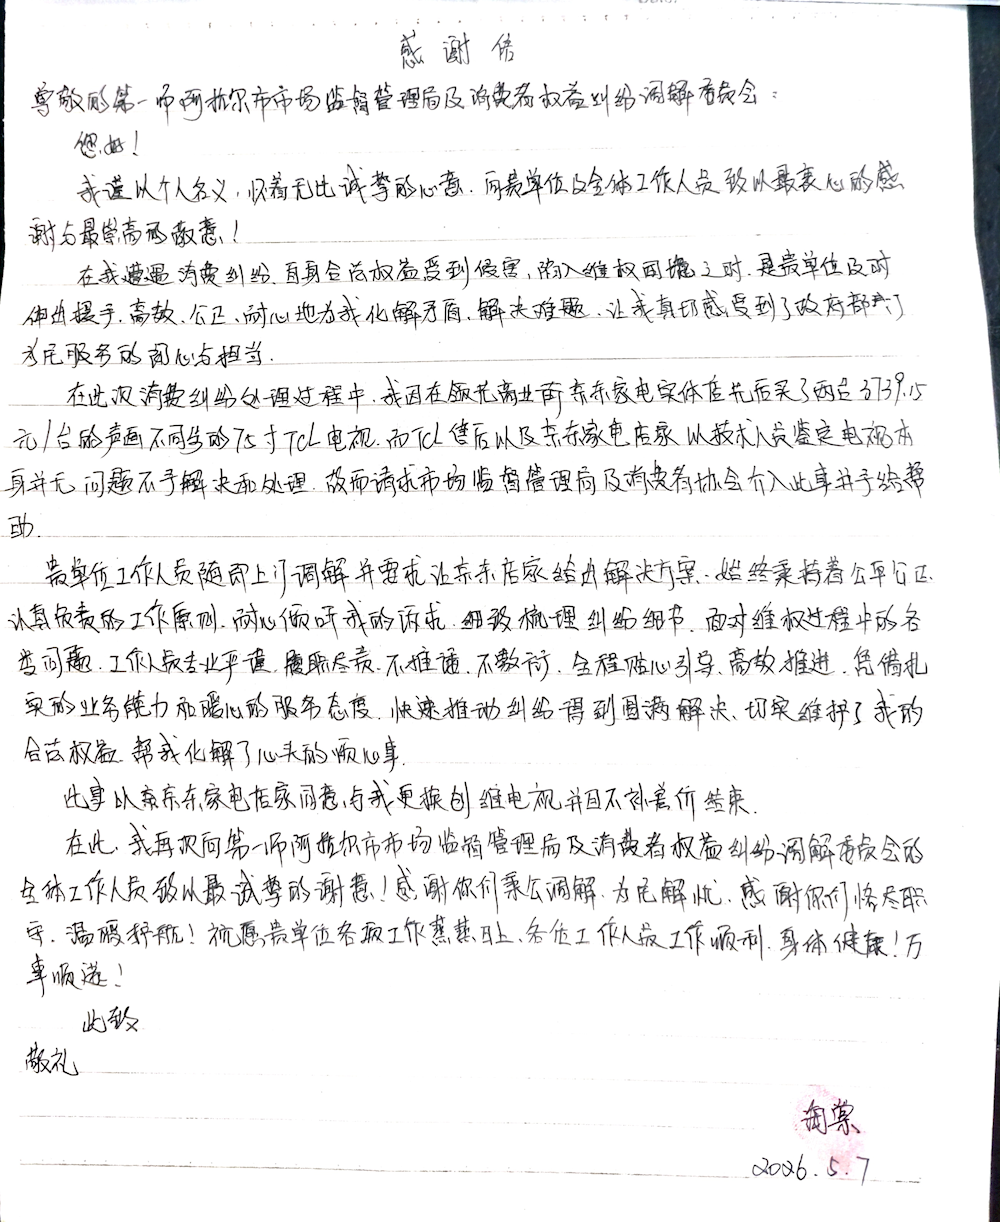 感谢信
尊敬的第一师阿拉尔市市场监督管理局及消费者权益纠纷调解委员会：
您好！
我谨以个人名义，怀着无比诚挚的心意，向贵单位及全体工作人员致以最衷心的感
谢与最崇高的敬意！
在我遭遇消费纠纷，自身合法权益受到侵害，陷入维权困境之时，是贵单位及时
伸出援手，高效、公正、耐心地为我化解矛盾，解决难题，让我真切感受到了政府部门
为民服务的初心与担当。
在此次消费纠纷处理过程中，我因在银芜商业街京东家电实体店先后买了两台3739.15
元/台的声画不同步的75寸TCL电视，而TCL售后以及京东家电店家以技术人员鉴定电视本
身并无问题不予解决和处理，故而请求市场监督管理局及消费者协会介入此事并予经帮
助。
贵单位工作人员随即上门调解并要求让京东店家给出解决方案，始终秉持着公平公正、
认真负责的工作原则，耐心倾听我的诉求，细致梳理纠纷细节，面对维权过程中的各
类问题，工作人员专业严谨，履职尽责，不推诿，不敷衍，全程贴心引导，高效推进，凭借扎
实的业务能力和暖心的服务态度，快速推动纠纷得到圆满解决，切实维护了我的
合法权益，帮我化解了心头的烦心事。
此事以京京东家电店家同意与我更换创维电视并且不补差价结束。
在此，我再次向第一师阿拉尔市市场监督管理局及消费者权益纠纷调解委员会的
全体工作人员致以最诚挚的谢意！感谢你们秉公调解，为民解忧，感谢你们恪尽职
守，温暖护航！祝愿贵单位各项工作蒸蒸日上，各位工作人员工作顺利，身体健康！万
事顺遂！
此致
敬礼
2026.5.7